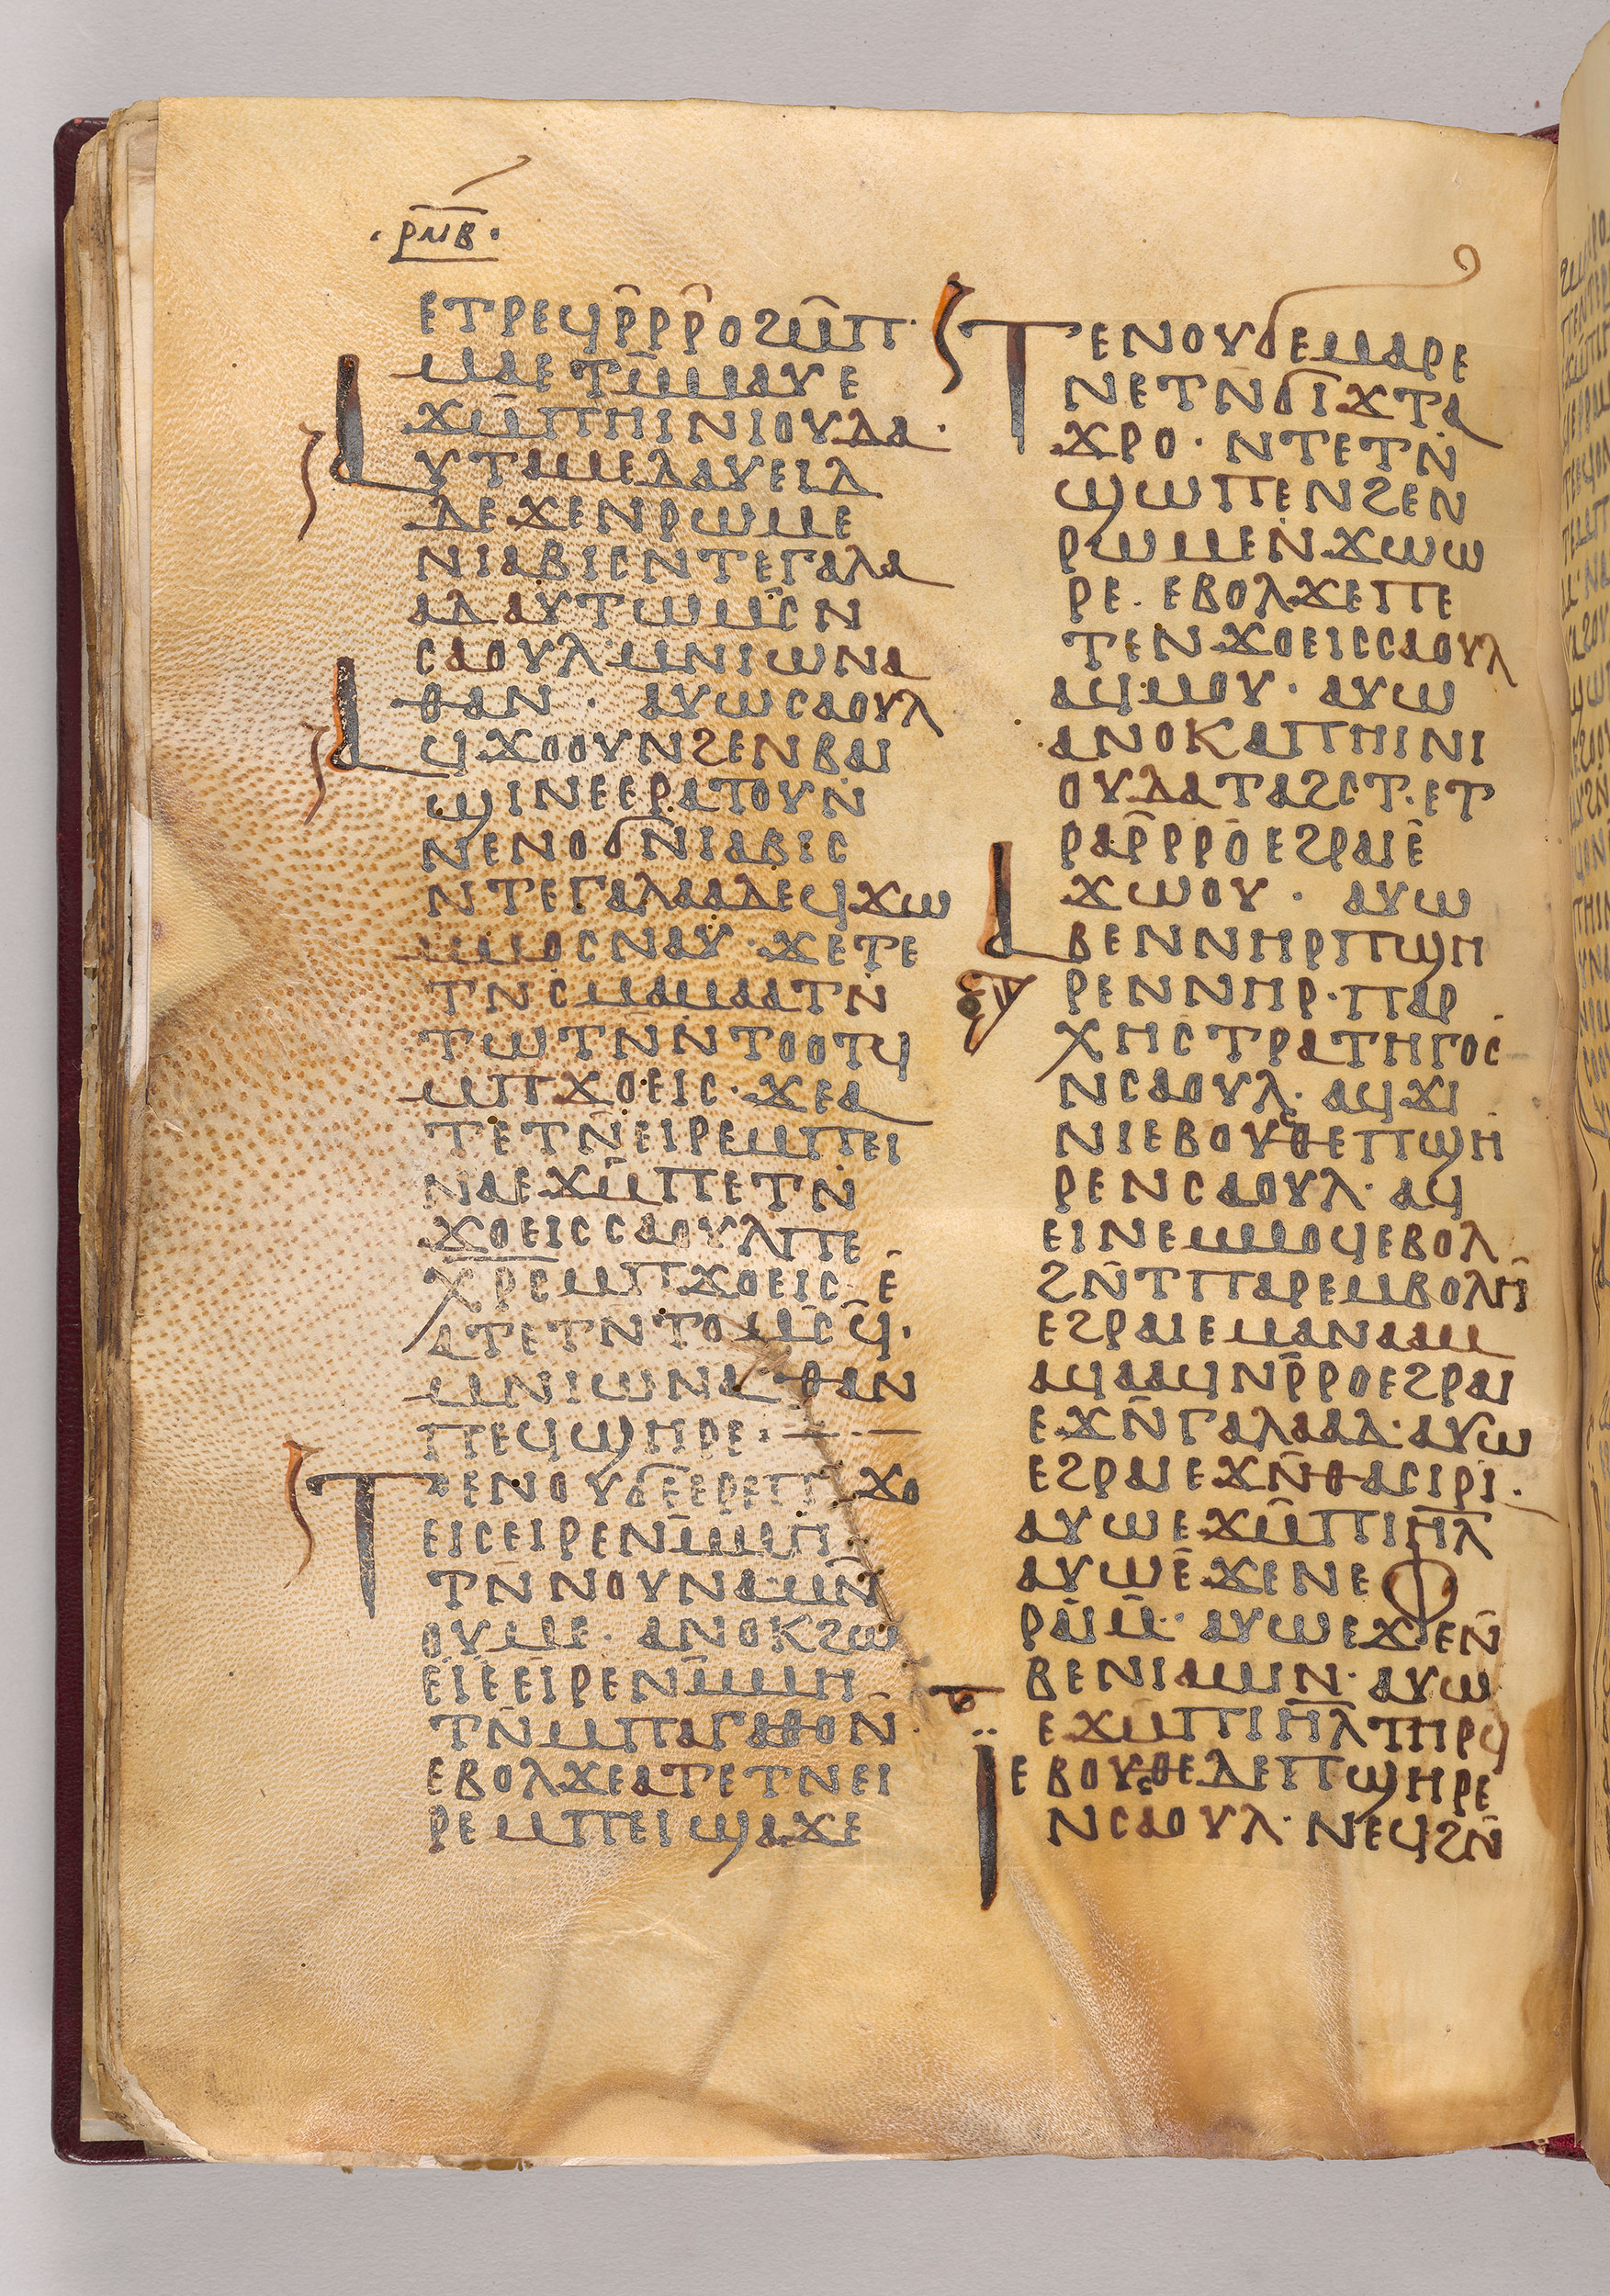 ⲣⲛ̅ⲃ̅
ⲉⲧⲣⲉϥⲣ̅ⲣⲣ̅ⲟϩⲙ̅ⲡ
ⲙⲁⲉⲧⲙ̅ⲙⲁⲩⲉ
ϫⲙ̅ⲡⲏⲓⲛⲓⲟⲩⲇⲁ·
ⲁⲩⲧⲁⲙⲉⲇⲁⲩⲉⲓⲇ
ⲇⲉϫⲉⲛⲣⲱⲙⲉ
ⲛⲓⲁⲃⲓⲥⲛⲧⲉⲅⲁⲗⲁ
ⲁⲇⲁⲩⲧⲱⲙⲥ̅ⲛ
ⲥⲁⲟⲩⲗ·ⲙⲛⲓⲱⲛⲁ
ⲑⲁⲛ· ⲁⲩⲱⲥⲁⲟⲩⲗ
ⲁϥϫⲟⲟⲩⲛϩⲉⲛⲃⲁⲓ
ϣⲓⲛⲉⲉⲣⲁⲧⲟⲩⲛ̇
ⲛⲉⲛⲟϭⲛⲓⲁⲃⲓⲥ
ⲛⲧⲉⲅⲁⲗⲁⲁⲇⲉϥϫⲱ
ⲙⲙⲟⲥⲛⲁⲩ·ϫⲉⲧⲉ
ⲧⲛⲥⲙⲁⲙⲁⲁⲧⲛ̇
ⲧⲱⲧⲛ̅ⲛ̇ⲧⲟⲟⲧϥ
ⲙⲡϫⲟⲉⲓⲥ·ϫⲉⲁ
ⲧⲉⲧⲛ̅ⲉⲓⲣⲉⲙⲡⲉⲓ
ⲛⲁⲉϫⲙ̅ⲡⲉⲧⲛ̇
ϫⲟⲉⲓⲥⲥⲁⲟⲩⲗⲡⲉ
ⲭ̅ⲣ̅ⲥ̅ⲙⲡϫⲟⲉⲓⲥ·ⲉ̄
ⲁⲧⲉⲧⲛⲧⲟⲙⲥ̅ϥ̅·
ⲙⲛⲓⲱⲛⲁⲑⲁⲛ
ⲡⲉϥϣⲏⲣⲉ:— · —
ⲧⲉⲛⲟⲩϭⲉⲉⲣⲉⲡϫⲟ
ⲉⲓⲥⲉⲓⲣⲉⲛⲙ̅ⲙⲏ
ⲧⲛ̅ⲛⲟⲩⲛⲁ·ⲙⲛ̅
ⲟⲩⲙⲉ· ⲁⲛⲟⲕϩⲱ
ⲉⲓⲉⲉⲓⲣⲉⲛⲙ̅ⲙⲏ
ⲧⲛ̅ⲙⲡⲁⲅⲁⲑⲟⲛ̅·
ⲉⲃⲟⲗϫⲉⲁⲧⲉⲧⲛⲉⲓ
ⲣⲉⲙⲡⲉⲓϣⲁϫⲉ
ⲧⲉⲛⲟⲩϭⲉⲙⲁⲣⲉ
ⲛⲉⲧⲛ̅ϭⲓϫⲧⲁ
ϫⲣⲟ· ⲛⲧⲉⲧⲛ̇
ϣⲱⲡⲉⲛϩⲉⲛ
ⲣⲱⲙⲉⲛ̇ϫⲱⲱ
ⲣⲉ· ⲉⲃⲟⲗϫⲉⲡⲉ
ⲧⲉⲛϫⲟⲉⲓⲥⲥⲁⲟⲩⲗ
ⲁϥⲙⲟⲩ· ⲁⲩⲱ
ⲁⲛⲟⲕⲁⲡⲏⲓⲛⲓ
ⲟⲩⲇⲁⲧⲁϩⲥⲧ·ⲉⲧ
ⲣⲁⲣ̅ⲣⲣⲟ̄ⲉϩⲣⲁⲓⲉ̄
ϫⲱⲟⲩ· ⲁⲩⲱ
ⲁⲃⲉⲛⲛⲏⲣⲡϣⲏ
ⲣⲉⲛⲛⲏⲣ·ⲡⲁⲣ
ⲭⲏⲥⲧⲣⲁⲧⲏⲅⲟⲥ
ⲛⲥⲁⲟⲩⲗ· ⲁϥϫⲓ
ⲛⲓⲉⲃⲟⲩⲥⲑⲉⲡϣⲏ
ⲣⲉⲛⲥⲁⲟⲩⲗ· ⲁϥ
ⲉⲓⲛⲉⲙⲙⲟϥⲉⲃⲟⲗ
ϩⲛ̅ⲧⲡⲁⲣⲉⲙⲃⲟⲗⲏ̄
ⲉϩⲣⲁⲓⲉⲙⲁⲛⲁⲁⲙ
ⲁϥⲁⲁϥⲛⲣ̅ⲣⲟⲉϩⲣⲁⲓ
ⲉϫⲛ̅ⲅⲁⲗⲁⲁⲇ·ⲁⲩⲱ
ⲉϩⲣⲁⲓⲉϫⲛ̅ⲑⲁⲥⲓⲣⲓ·
ⲁⲩⲱⲉϫⲙ̅ⲡⲓⲏ̅ⲗ̅
ⲁⲩⲱⲉ̄ϫⲉⲛⲉⲫ
ⲣⲁⲓⲙ̅· ⲁⲩⲱⲉϫⲉⲛ̅
ⲃⲉⲛⲓⲁⲙⲓⲛ· ⲁⲩⲱ
ⲉϫⲙ̅ⲡⲓⲏ̅ⲗ̅ⲧⲏⲣϥ
ⲓⲉⲃⲟⲩⲥⲑⲉⲇⲉⲡϣⲏⲣⲉ
ⲛⲥⲁⲟⲩⲗ· ⲛⲉϥϩⲛ̅